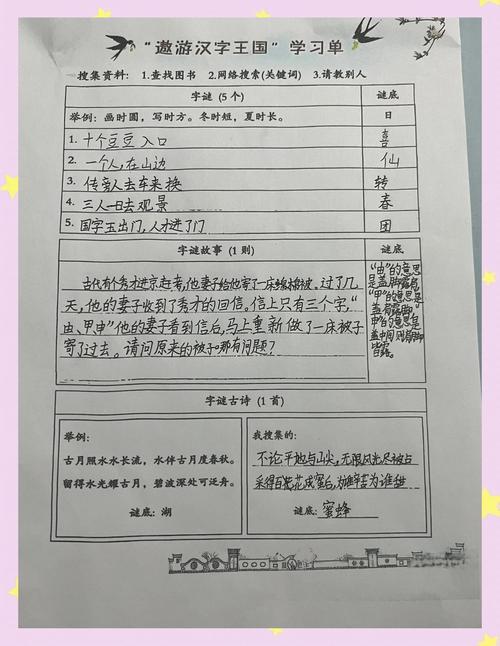 “遨游汉字王国”学习单
搜集资料： 1.查找图书 2.网络搜索(关键词) 3.请教别人
字谜（5个） 谜底
举例：画时圆，写时方。冬时短，夏时长。 日
1. 十个豆豆入口 喜
2. 一个人,在山边 仙
3. 传旁人去车来换 转
4. 三人一日去观景 春
5. 国字玉出门,人才进了门 团
字谜故事（1则） 谜底
古代有个秀才进京赶考,他妻子给他寄了一床棉被。过了几
天,他的妻子收到了秀才的回信。信上只有三个字,“
由、甲申”他的妻子看到信后,马上重新做了一床被子
寄了过去。请问原来的被子哪有问题?
“由”的意思
是盖脚露肩
“甲”的意思是
盖肩露脚
“申”的意思是
盖中间则肩脚
皆露。
字谜古诗（1首）
举例：
古月照水水长流，水伴古月度春秋。
留得水光耀古月，碧波深处可泛舟。
谜底：湖
我搜集的：
不论平地与山尖,无限风光尽被占
采得百花成蜜后,为谁辛苦为谁甜
谜底：蜜蜂